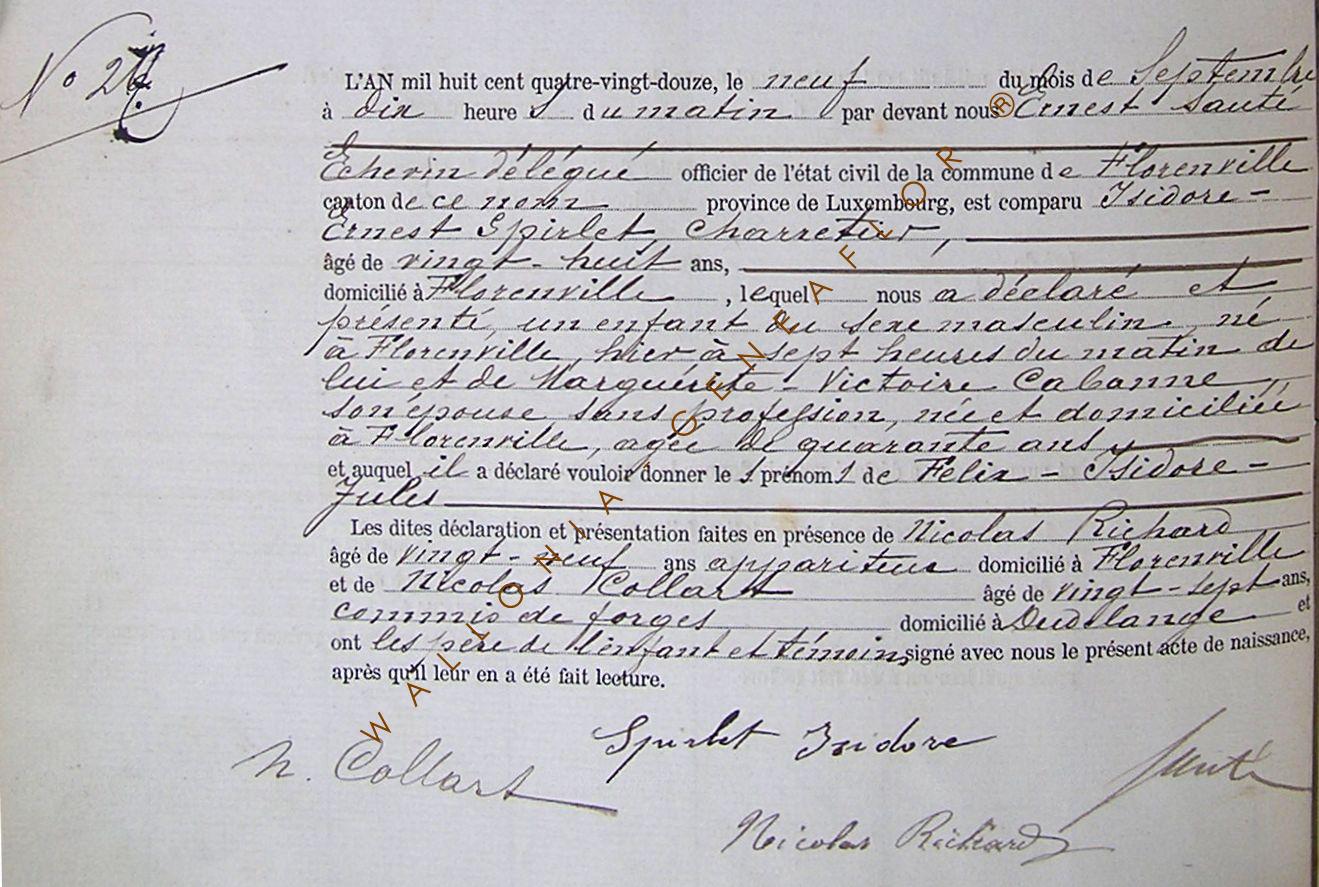 No 24
L'AN mil huit cent quatre-vingt-douze, le neuf du mois de Septembre
à dix heures du matin par devant nous Ernest Santé
Echevin délégué officier de l'état civil de la commune de Florenville
canton de ce nom province de Luxembourg, est comparu Isidore-
Ernest Spirlet, Charretier,
âgé de vingt-huit ans,
domicilié à Florenville, lequel nous a déclaré et
présenté, un enfant du sexe masculin, né
à Florenville, hier à sept heures du matin de
lui et de Marguérite-Victoire Cabanne,
son épouse sans profession, née et domiciliée
à Florenville, agée de quarante ans,
et auquel il a déclaré vouloir donner les prénoms de Félix-Isidore-
Jules
Les dites déclaration et présentation faites en présence de Nicolas Richard
âgé de vingt-neuf ans appariteur domicilié à Florenville
et de Nicolas Collart âgé de vingt-sept ans,
commis de forges domicilié à Dudelange et
ont les père de l'enfant et témoins signé avec nous le présent acte de naissance,
après qu'il leur en a été fait lecture.
Spirlet Isidore
N. Collart
Santé
Nicolas Richard
WALLONIA GENEAFLOR®